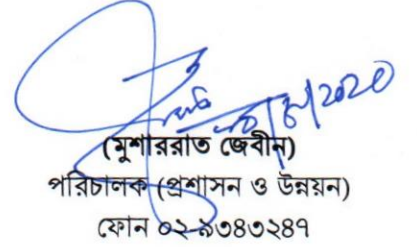 (মুশাররাত জেবীন)
পরিচালক (প্রশাসন ও উন্নয়ন)
ফোন ০২-৯৩৪৩২৪৭